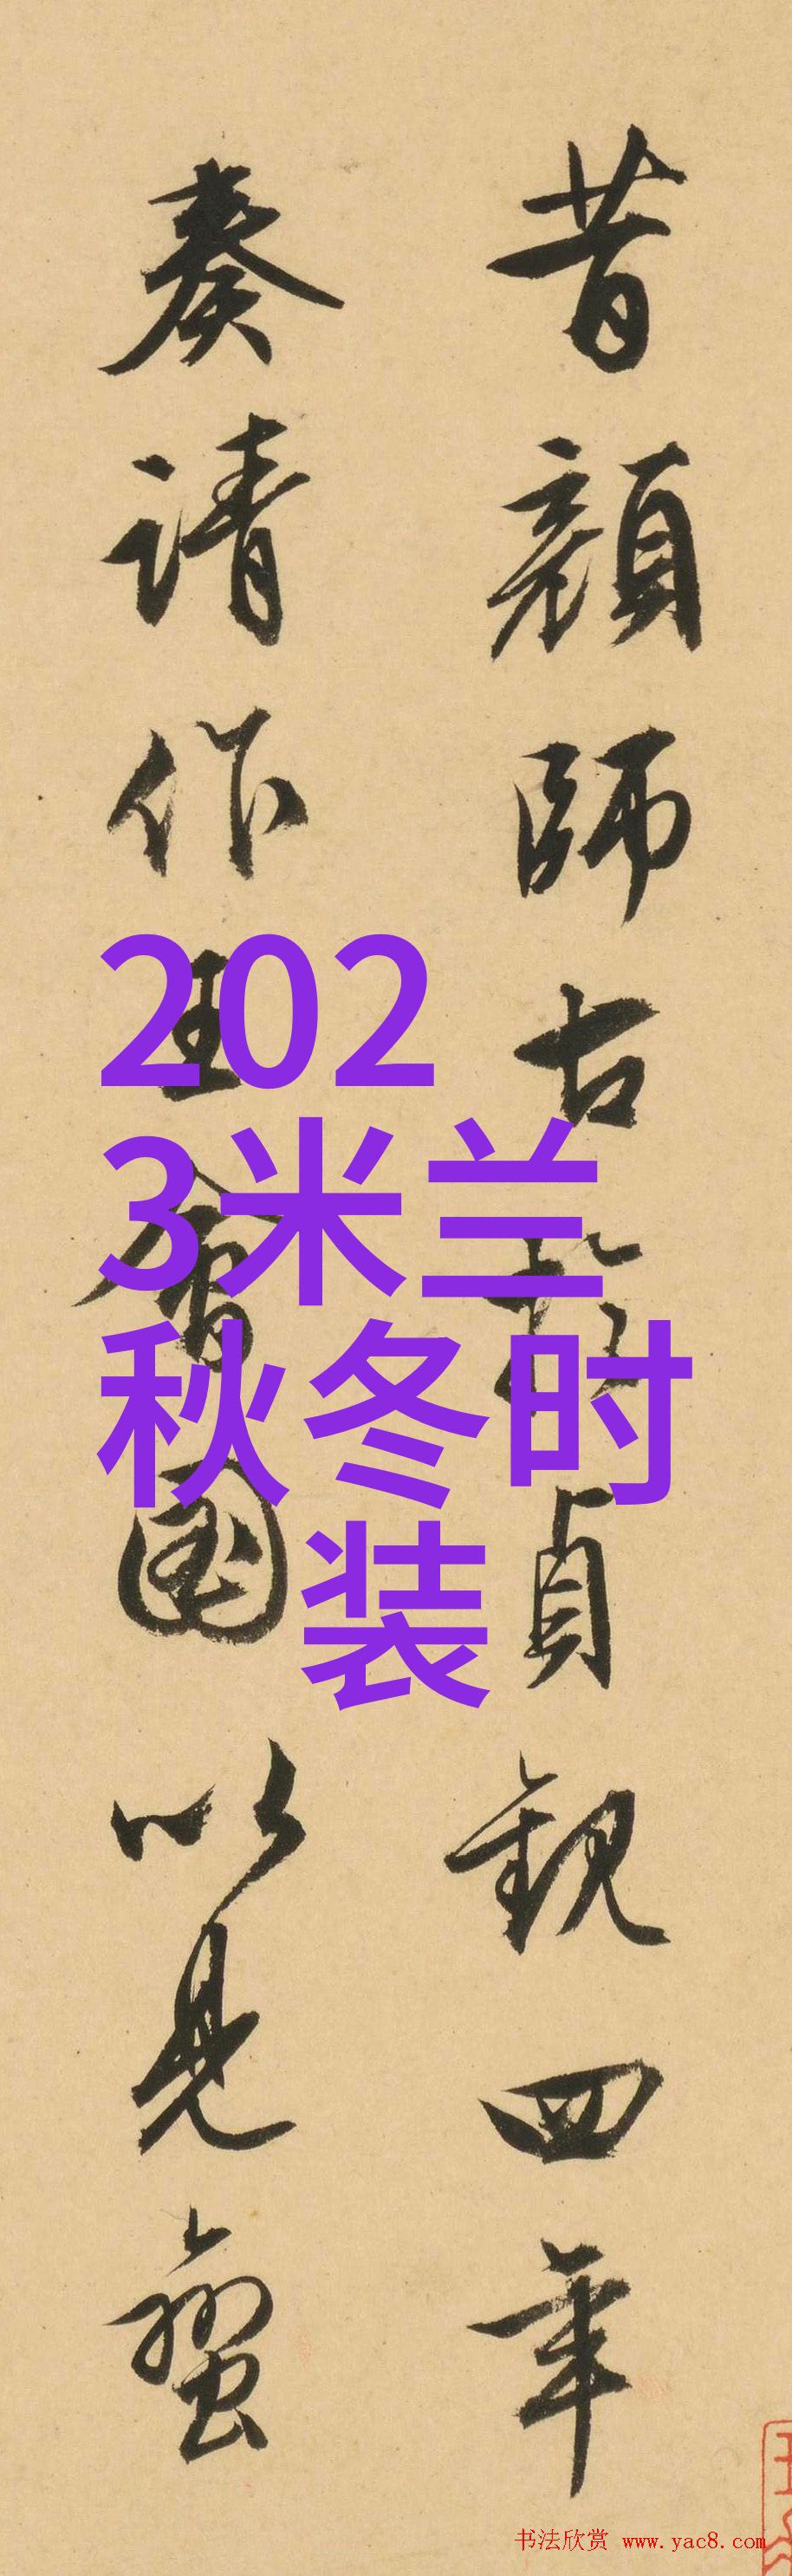 昔顔師古於貞観四年
奏請作王會圖以見蠻
202
3米兰
秋冬时
装
书法欣赏 www.yac8.com